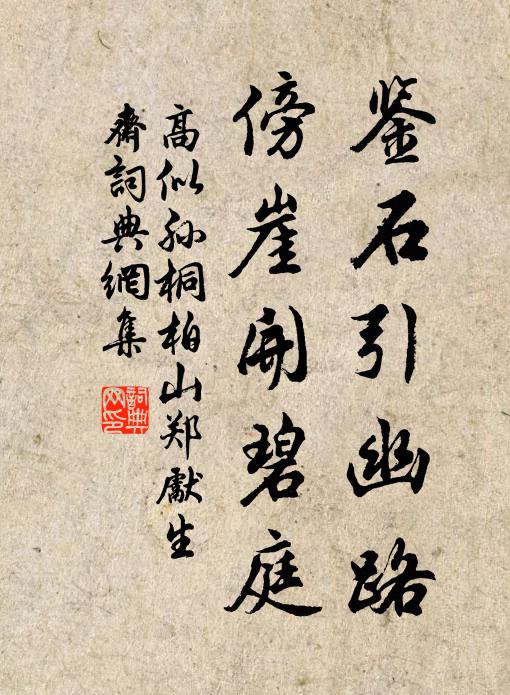 鉴石引幽路
傍崖開碧庭
高似孙桐柏山郑獻生
齋詞典網集
詞典
网印